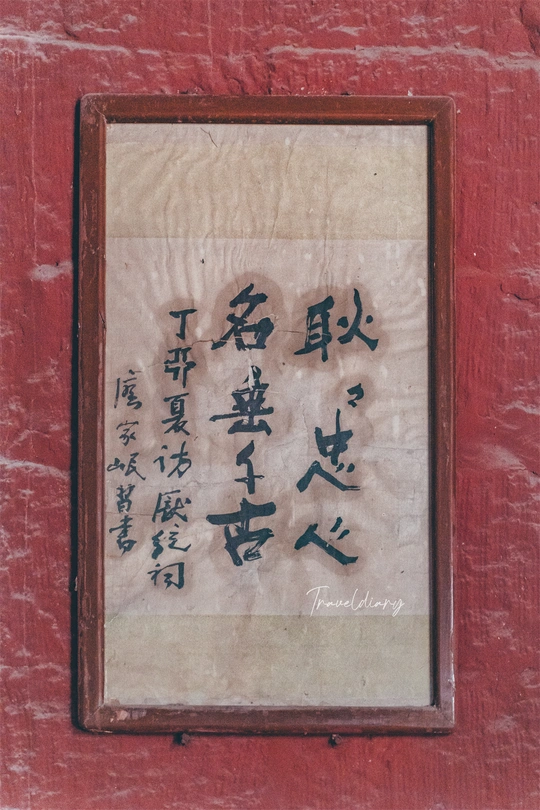 耿々忠心
名垂千古
丁卯夏访庞统祠
廖家岷书
Traveldiary